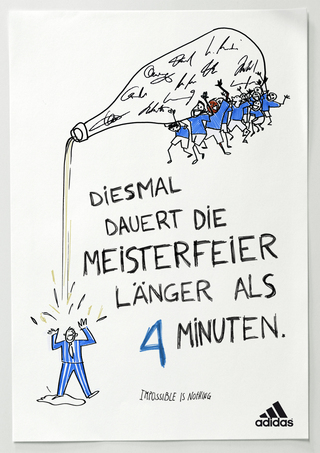 DIESMAL
DAUERT DIE
MEISTERFEIER
LÄNGER ALS
4 MINUTEN.
IMPOSSIBLE IS NOTHING
adidas